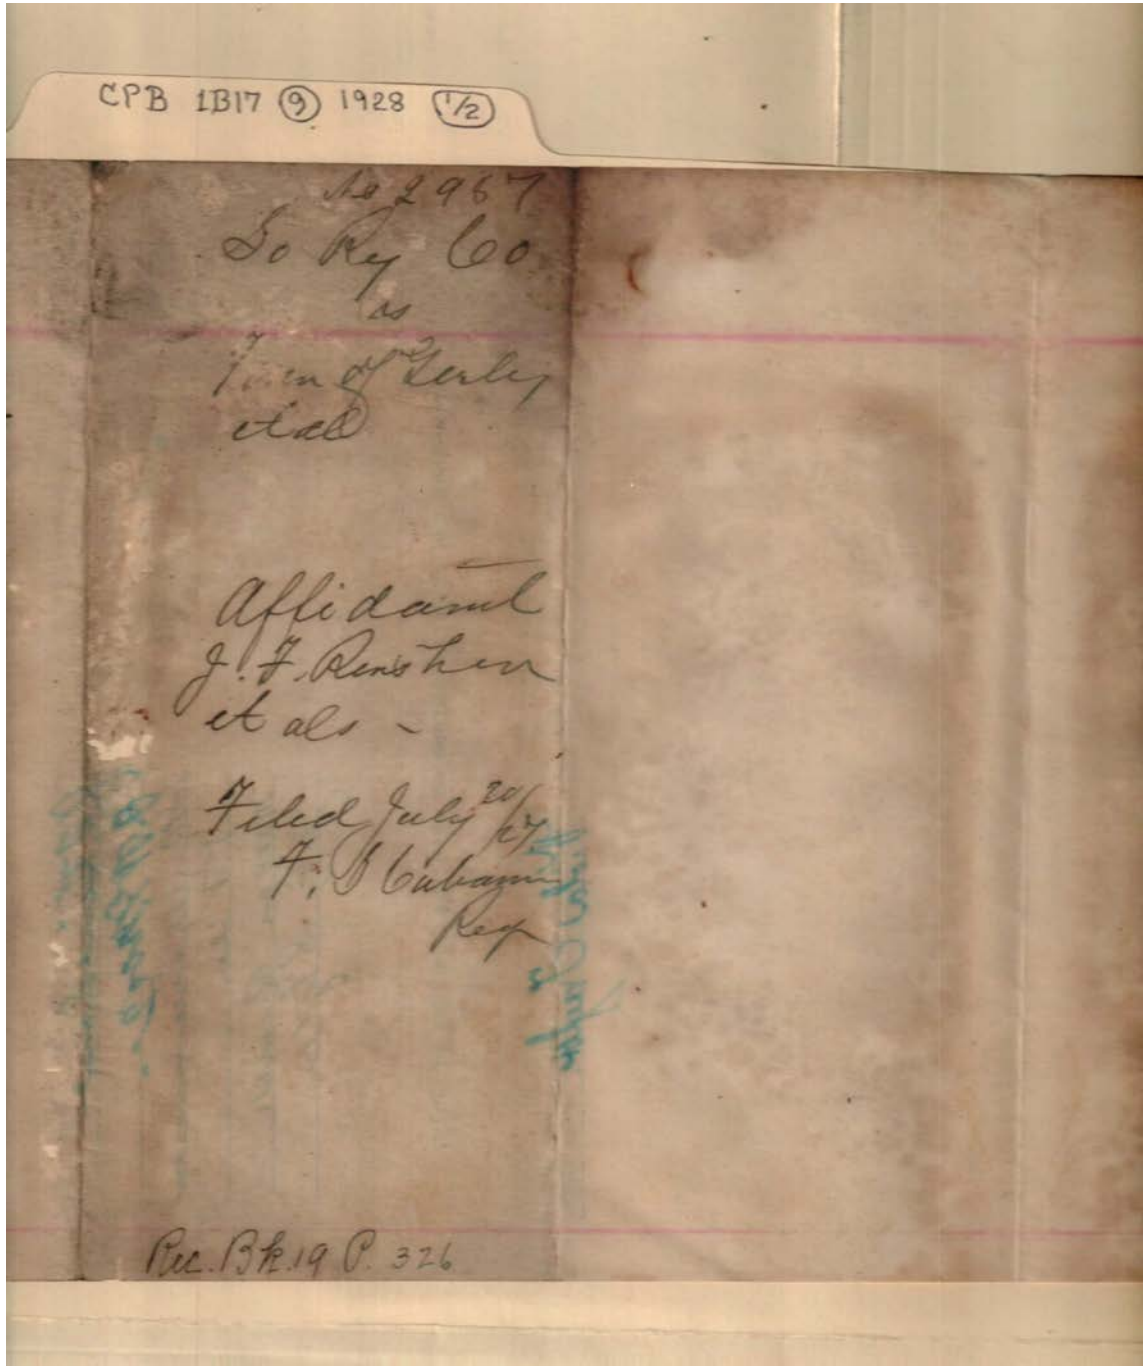 CPB 1B17 9 1928 1/2
No 2967
So Ry Co
vs
Town of Gurley
et al
Affidavit
J. F. Renshaw
et als -
Filed July 20/27
F. B
Reg
Rec. Bk. 19 P. 326